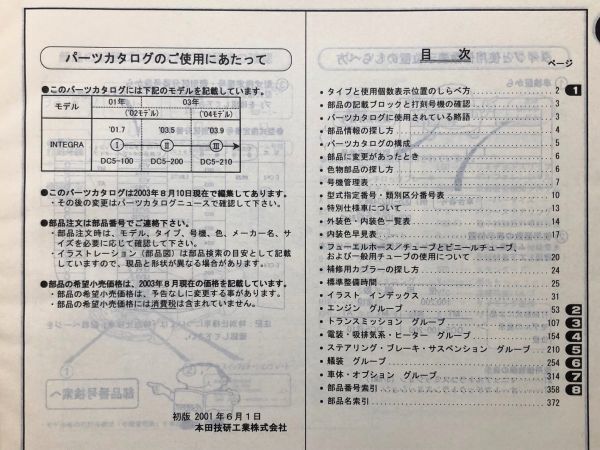 パーツカタログのご使用にあたって
●このパーツカタログには下記のモデルを記載しています。
モデル 01年 03年
('02モデル) ('04モデル)
INTEGRA '01.7 '03.5 '03.9
Ⅰ Ⅱ Ⅲ
DC5-100 DC5-200 DC5-210
●このパーツカタログは2003年8月10日現在で編集してあります。
・その後の変更はパーツカタログニュースで確認して下さい。
●部品注文は部品番号でご連絡下さい。
・部品注文時は、モデル、タイプ、号機、色、メーカー名、サ
イズを必要に応じて確認して下さい。
・イラストレーション(部品図)は部品検索の目安として記載
していますので、現品と形状が異なる場合があります。
●部品の希望小売価格は、2003年8月現在の価格を記載しています。
・部品の希望小売価格は、予告なしに変更する事があります。
・部品の希望小売価格には消費税は含まれていません。
初版 2001年6月1日
本田技研工業株式会社
目 次
ページ
・タイプと使用個数表示位置のしらべ方 2 1
・部品の記載ブロックと打刻号機の確認 3
・パーツカタログに使用されている略語 3
・部品情報の探し方 4
・パーツカタログの構成 5
・部品に変更があったとき 6
・色物部品の探し方 6
・号機管理表 7
・型式指定番号・類別区分番号表 10
・特別仕様車について 13
・外装色・内装色一覧表 14
・内装色早見表 17
・フューエルホース/チューブとビニールチューブ、
および一般用チューブの使用について 20
・補修用カプラーの探し方 24
・標準整備時間 25
・イラスト インデックス 31
・エンジン グループ 53 2
・トランスミッション グループ 107 3
・電装・吸排気系・ヒーター グループ 154 4
・ステアリング・ブレーキ・サスペンション グループ 210 5
・艤装 グループ 254 6
・車体・オプション グループ 314 7
・部品番号索引 358 8
・部品名索引 372